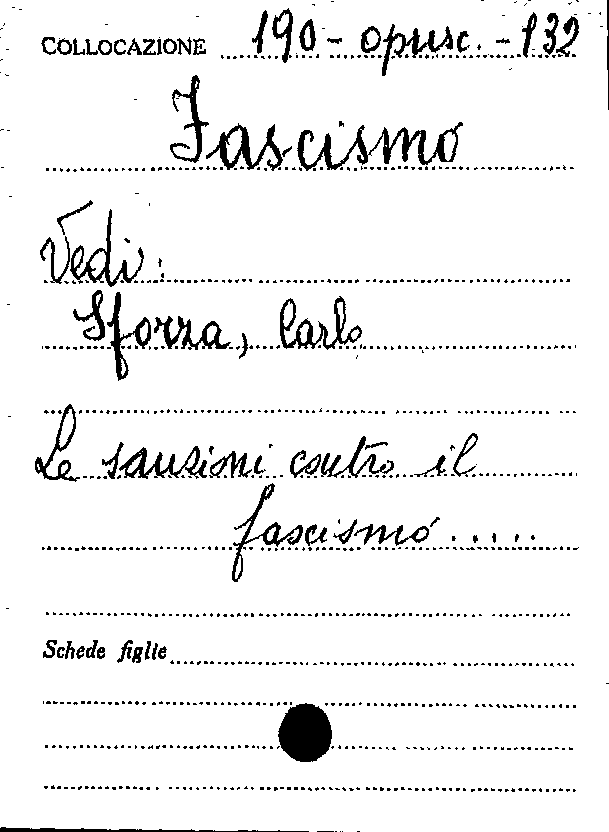 COLLOCAZIONE 190 - opusc. - 132
Fascismo
Vedi:
Sforza, Carlo
Le sanzioni contro il
fascismo.....
Schede figlie